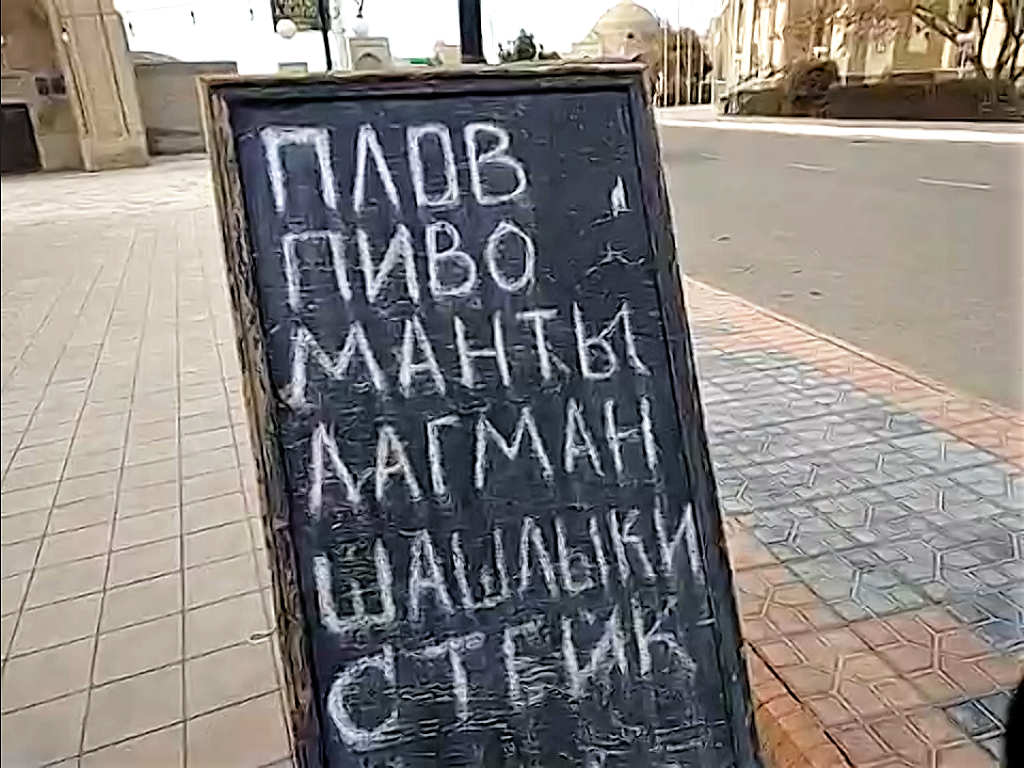 ПЛОВ
ПИВО
МАНТЫ
ЛАГМАН
ШАШЛЫКИ
СТЕЙК